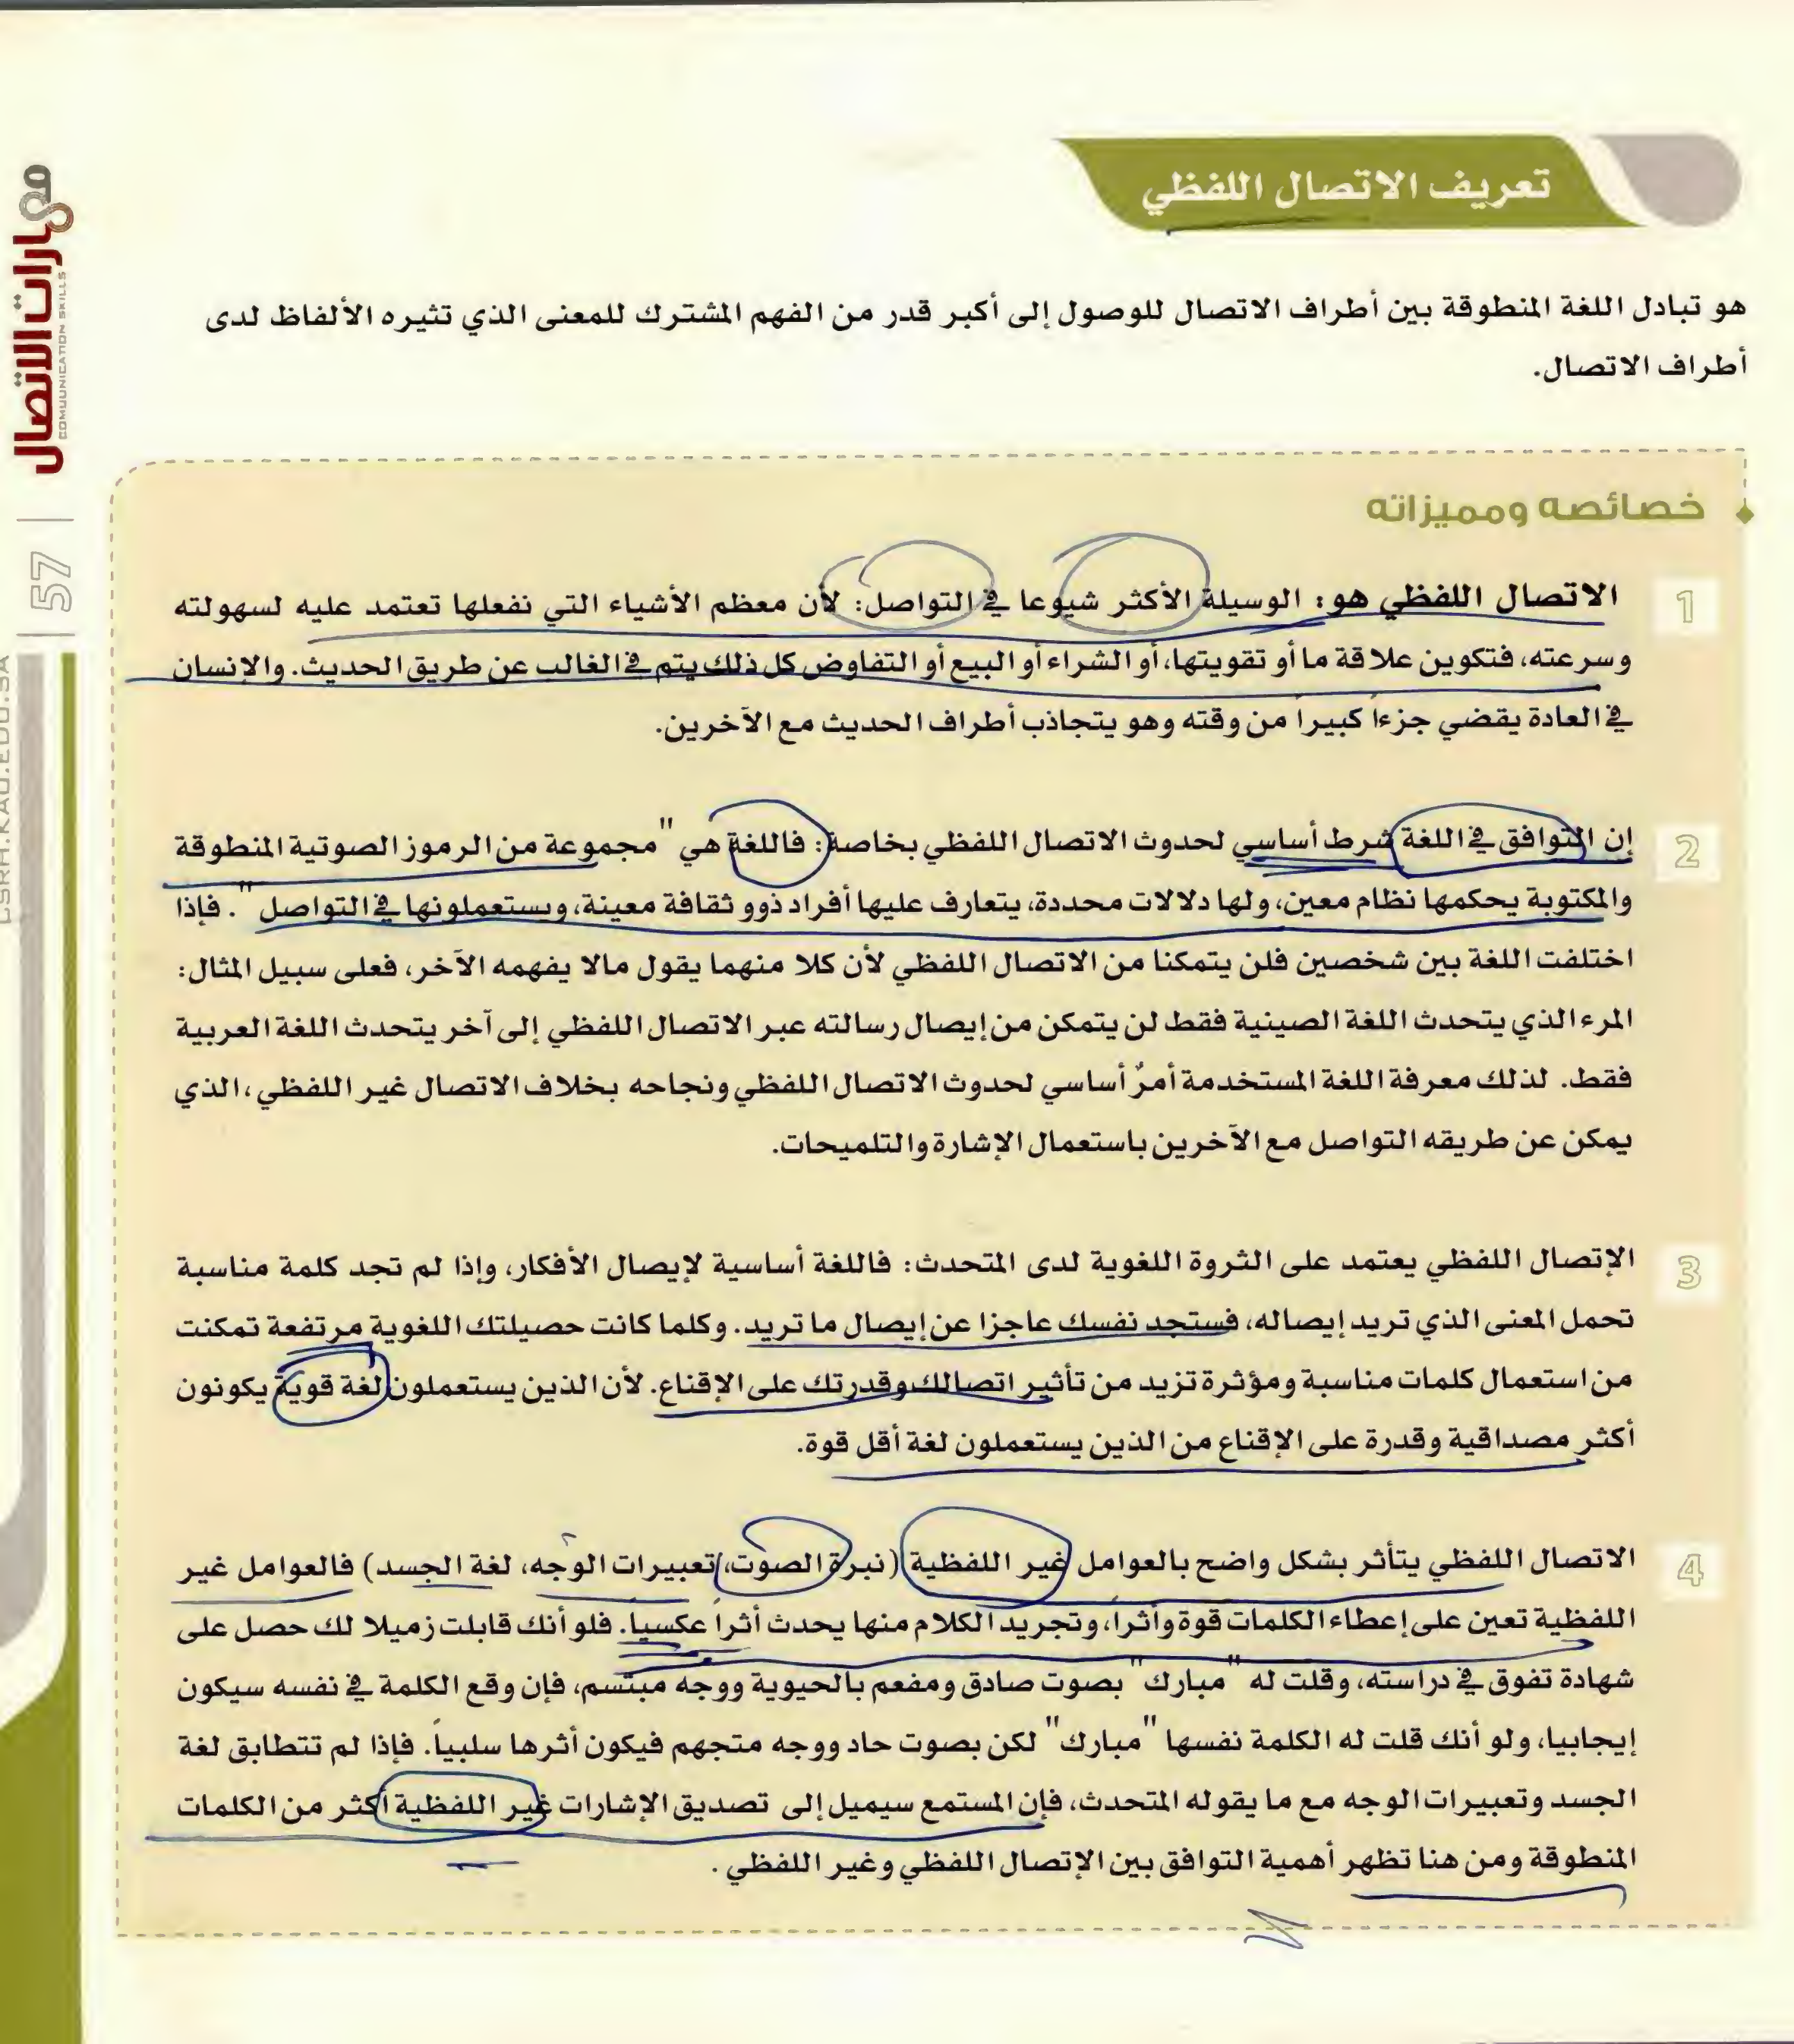 تعريف الاتصال اللفظي
هو تبادل اللغة المنطوقة بين أطراف الاتصال للوصول إلى أكبر قدر من الفهم المشترك للمعنى الذي تثيره الألفاظ لدى
أطراف الاتصال.
خصائصه ومميزاته
1
الاتصال اللفظي هو: الوسيلة الأكثر شيوعا في التواصل: لأن معظم الأشياء التي نفعلها تعتمد عليه لسهولته
وسرعته، فتكوين علاقة ما أو تقويتها، أو الشراء أو البيع أو التفاوض كل ذلك يتم في الغالب عن طريق الحديث. والإنسان
في العادة يقضي جزءاً كبيراً من وقته وهو يتجاذب أطراف الحديث مع الآخرين.
2
إن التوافق في اللغة شرط أساسي لحدوث الاتصال اللفظي بخاصة: فاللغة هي "مجموعة من الرموز الصوتية المنطوقة
والمكتوبة يحكمها نظام معين، ولها دلالات محددة، يتعارف عليها أفراد ذوو ثقافة معينة، ويستعملونها في التواصل". فإذا
اختلفت اللغة بين شخصين فلن يتمكنا من الاتصال اللفظي لأن كلا منهما يقول مالا يفهمه الآخر، فعلى سبيل المثال:
المرء الذي يتحدث اللغة الصينية فقط لن يتمكن من إيصال رسالته عبر الاتصال اللفظي إلى آخر يتحدث اللغة العربية
فقط. لذلك معرفة اللغة المستخدمة أمرٌ أساسي لحدوث الاتصال اللفظي ونجاحه بخلاف الاتصال غير اللفظي، الذي
يمكن عن طريقه التواصل مع الآخرين باستعمال الإشارة والتلميحات.
3
الإتصال اللفظي يعتمد على الثروة اللغوية لدى المتحدث: فاللغة أساسية لإيصال الأفكار، وإذا لم تجد كلمة مناسبة
تحمل المعنى الذي تريد إيصاله، فستجد نفسك عاجزا عن إيصال ما تريد. وكلما كانت حصيلتك اللغوية مرتفعة تمكنت
من استعمال كلمات مناسبة ومؤثرة تزيد من تأثير اتصالك وقدرتك على الإقناع. لأن الذين يستعملون لغة قوية يكونون
أكثر مصداقية وقدرة على الإقناع من الذين يستعملون لغة أقل قوة.
4
الاتصال اللفظي يتأثر بشكل واضح بالعوامل غير اللفظية (نبرة الصوت، تعبيرات الوجه، لغة الجسد) فالعوامل غير
اللفظية تعين على إعطاء الكلمات قوة وأثراً، وتجريد الكلام منها يحدث أثراً عكسياً. فلو أنك قابلت زميلا لك حصل على
شهادة تفوق في دراسته، وقلت له "مبارك" بصوت صادق ومفعم بالحيوية ووجه مبتسم، فإن وقع الكلمة في نفسه سيكون
إيجابيا، ولو أنك قلت له الكلمة نفسها "مبارك" لكن بصوت حاد ووجه متجهم فيكون أثرها سلبياً. فإذا لم تتطابق لغة
الجسد وتعبيرات الوجه مع ما يقوله المتحدث، فإن المستمع سيميل إلى تصديق الإشارات غير اللفظية أكثر من الكلمات
المنطوقة ومن هنا تظهر أهمية التوافق بين الإتصال اللفظي وغير اللفظي.
مهارات الاتصال
COMMUNICATION SKILLS
57